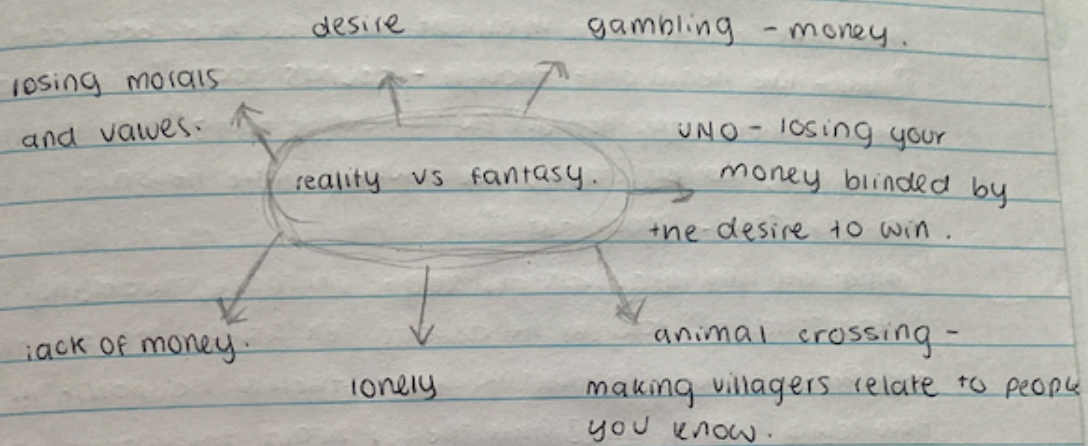 desire
gambling - money.
losing morals
and values.
UNO - losing your
money blinded by
the desire to win.
reality vs fantasy.
lack of money.
lonely
animal crossing -
making villagers relate to people
you know.